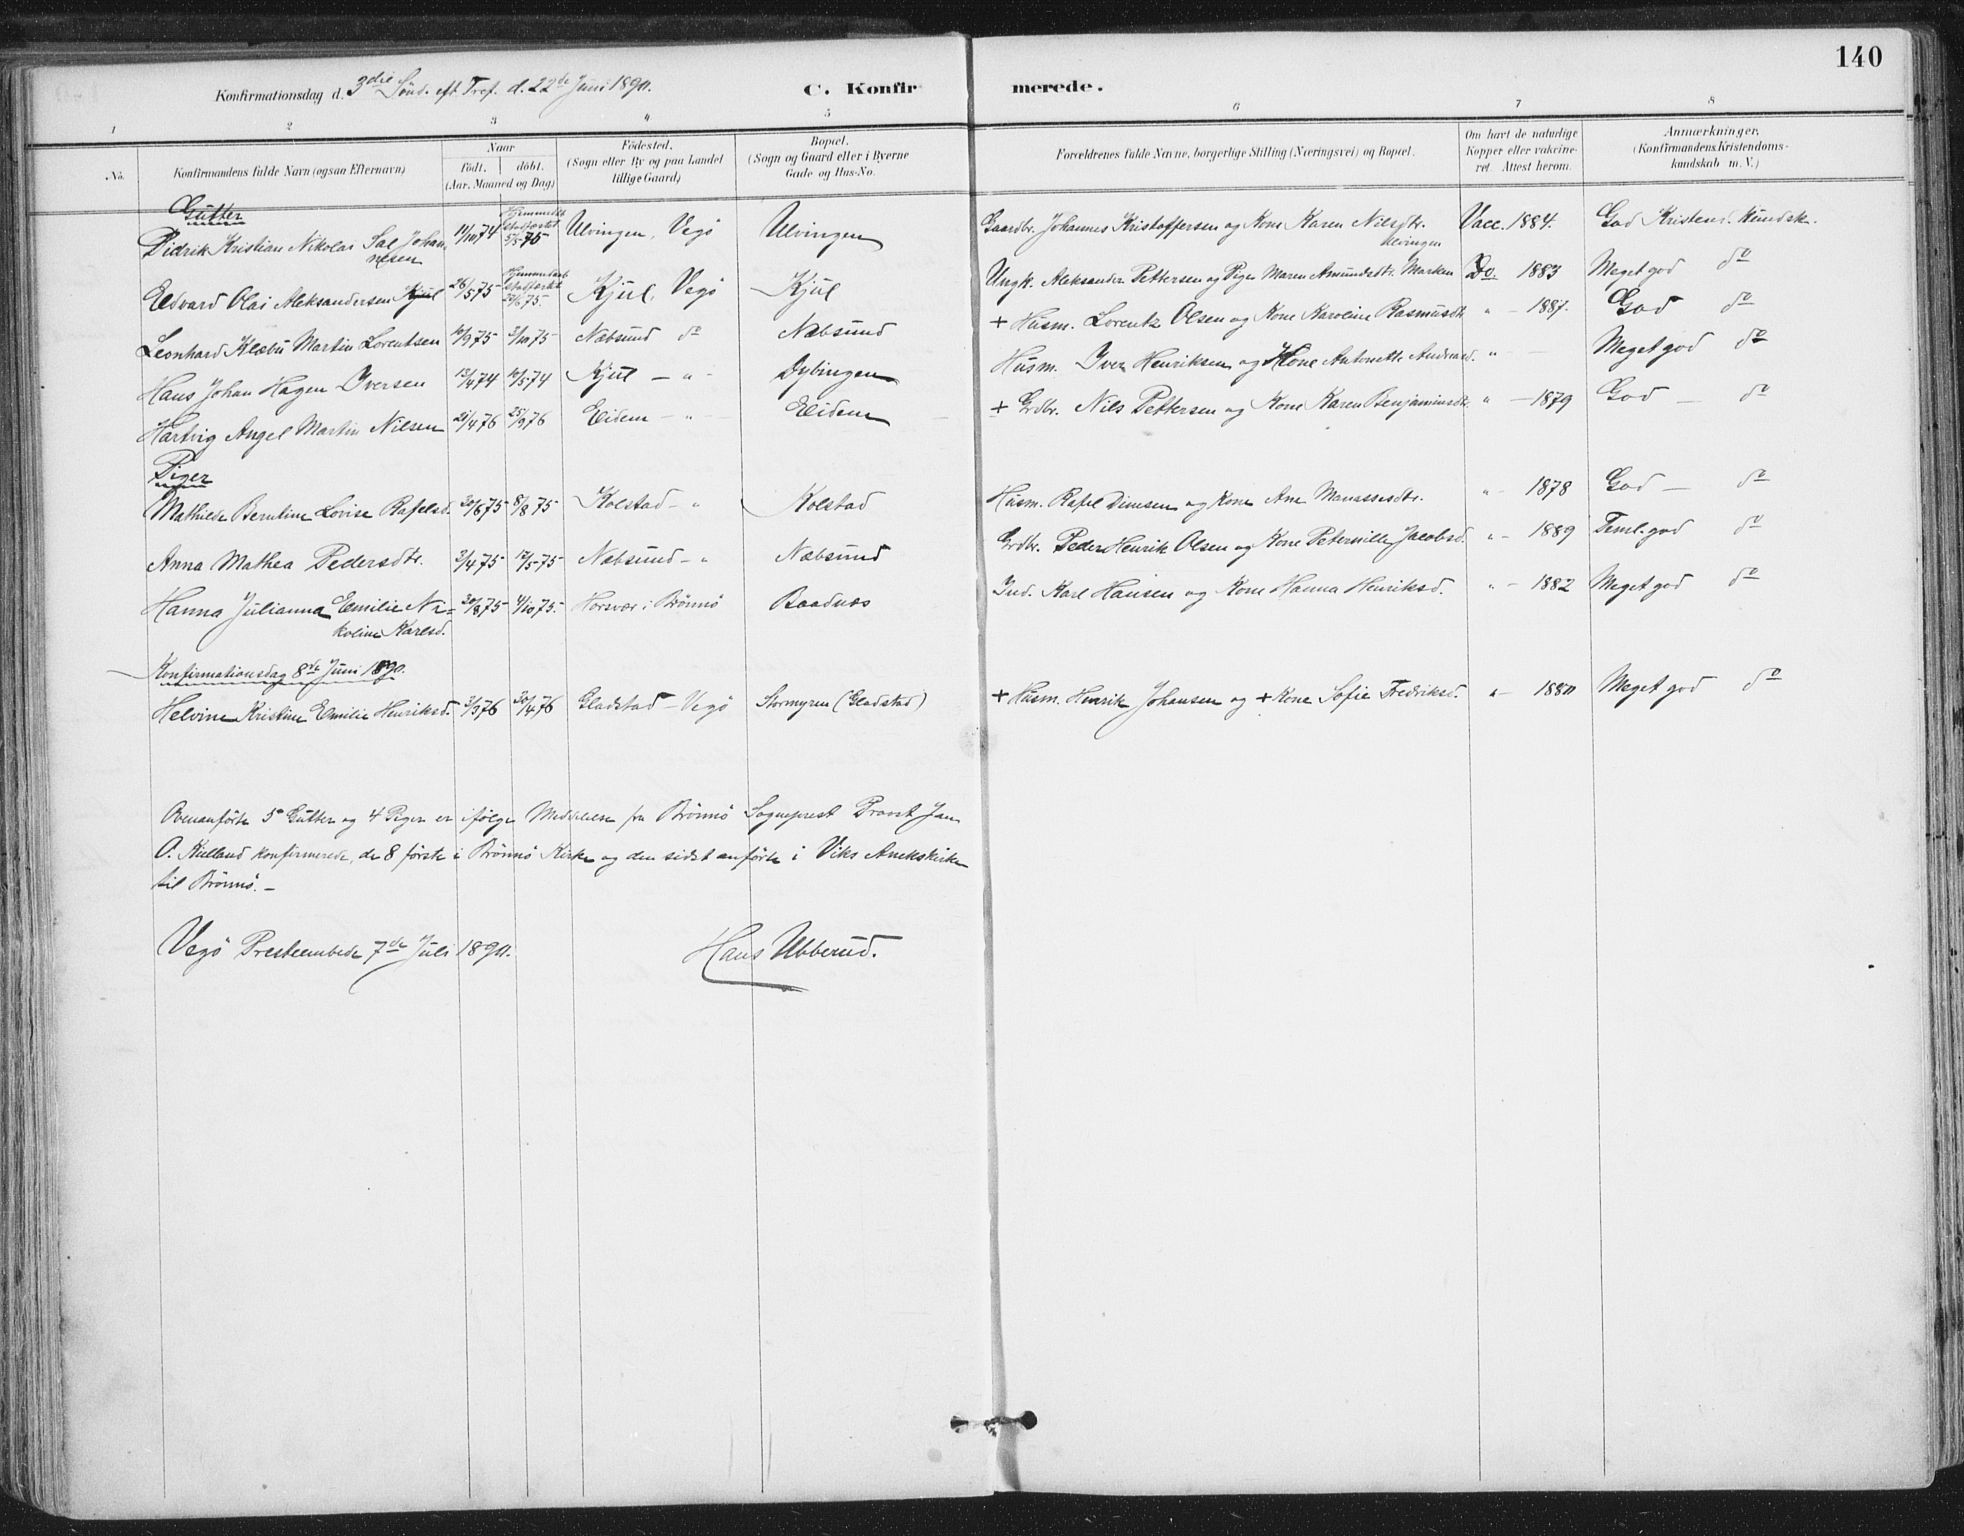 140
Konfirmationsdag d. 3die Sönd. eft. Tref. d. 22de Juni 1890. C. Konfirmerede.
1 2 3 4 5 6 7 8
No. Konfirmandens fulde Navn (ogsaa Efternavn) Naar födt. döbt. (Aar, Maaned og Dag) Födested. (Sogn eller By og paa Landet tillige Gaard) Bopæl. (Sogn og Gaard eller i Byerne Gade og Hus-No. Forældrenes fulde Navne, borgerlige Stilling (Næringsvei) og Bopæl. Om havt de naturlige Kopper eller vakcineret. Attest herom. Anmærkninger. (Konfirmandens Kristendomskundskab m. V.)
Gutter
Didrik Kristian Nikolai Sal Johannesen 11/10 74 Hjemmedøbt stadfæstet 5/5 75 Ulvingen, Vegö Ulvingen Gaardbr. Johannes Kristoffersen og Kone Karen Nilsdtr. Ulvingen Vacc. 1884. God Kristend. Kundsk.
Edvard Olai Aleksandersen Kjul 26/5 75 Kjul, Vegö Kjul Ungk. Aleksander Pettersen og Pige Maren Amundsdtr. Marken Do. 1883 Meget god do
Leonhard Klæbu Martin Lorentsen 10/9 75 3/10 75 Næbsund do Næbsund + Husm. Lorentz Olsen og Kone Karoline Rasmusdtr. " - 1887. God do
Hans Johan Hagen Iversen 13/4 74 10/5 74 Kjul - " - Dybingen Husm. Iver Henriksen og Kone Antonette Andreasd. " - Meget god do
Hartvig Angel Martin Nilsen 21/4 76 25/9 76 Eidem - " - Eidem + Grdbr. Nils Pettersen og Kone Karen Benjaminsdtr. " - 1879 God - do
Piger
Mathilde Berntine Lovise Rafelsd. 20/6 75 8/8 75 Kolstad - " Kolstad Husm. Rafel Dinesen og Kone Ane Manassesdtr. " - 1878 God - do
Anna Mathea Pedersdtr. 2/4 75 17/5 75 Næbsund - " Næbsund Grdbr. Peder Henrik Olsen og Kone Peternille Jacobsd. " - 1889 Teml. god do
Hanna Julianna Emilie Nikoline Karlsd. 30/8 75 4/10 75. Horsvær i Brönnö Baadnæs Ind. Karl Hansen og Kone Hanna Henriksd. " - 1882 Meget god do
Konfirmationsdag 8de Juni 1890.
Helvine Kristine Emilie Henriksd. 3/3 76 30/4 76 Gladstad - Vegö Stormyren (Gladstad) + Husm. Henrik Johansen og + Kone Sofie Fredriksd. " - 1880 Meget god do
Ovenanförte 5 Gutter og 4 Piger er ifølge Meddelelse fra Brönnö Sogneprest Provst Jan
O. Kielland konfirmerede, de 8 förste i Brönnö Kirke og den sidst anförte i Viks Anekskirke
til Brönnö. -
Vegö Presteembede 7de Juli 1890. Hans Ubberud.